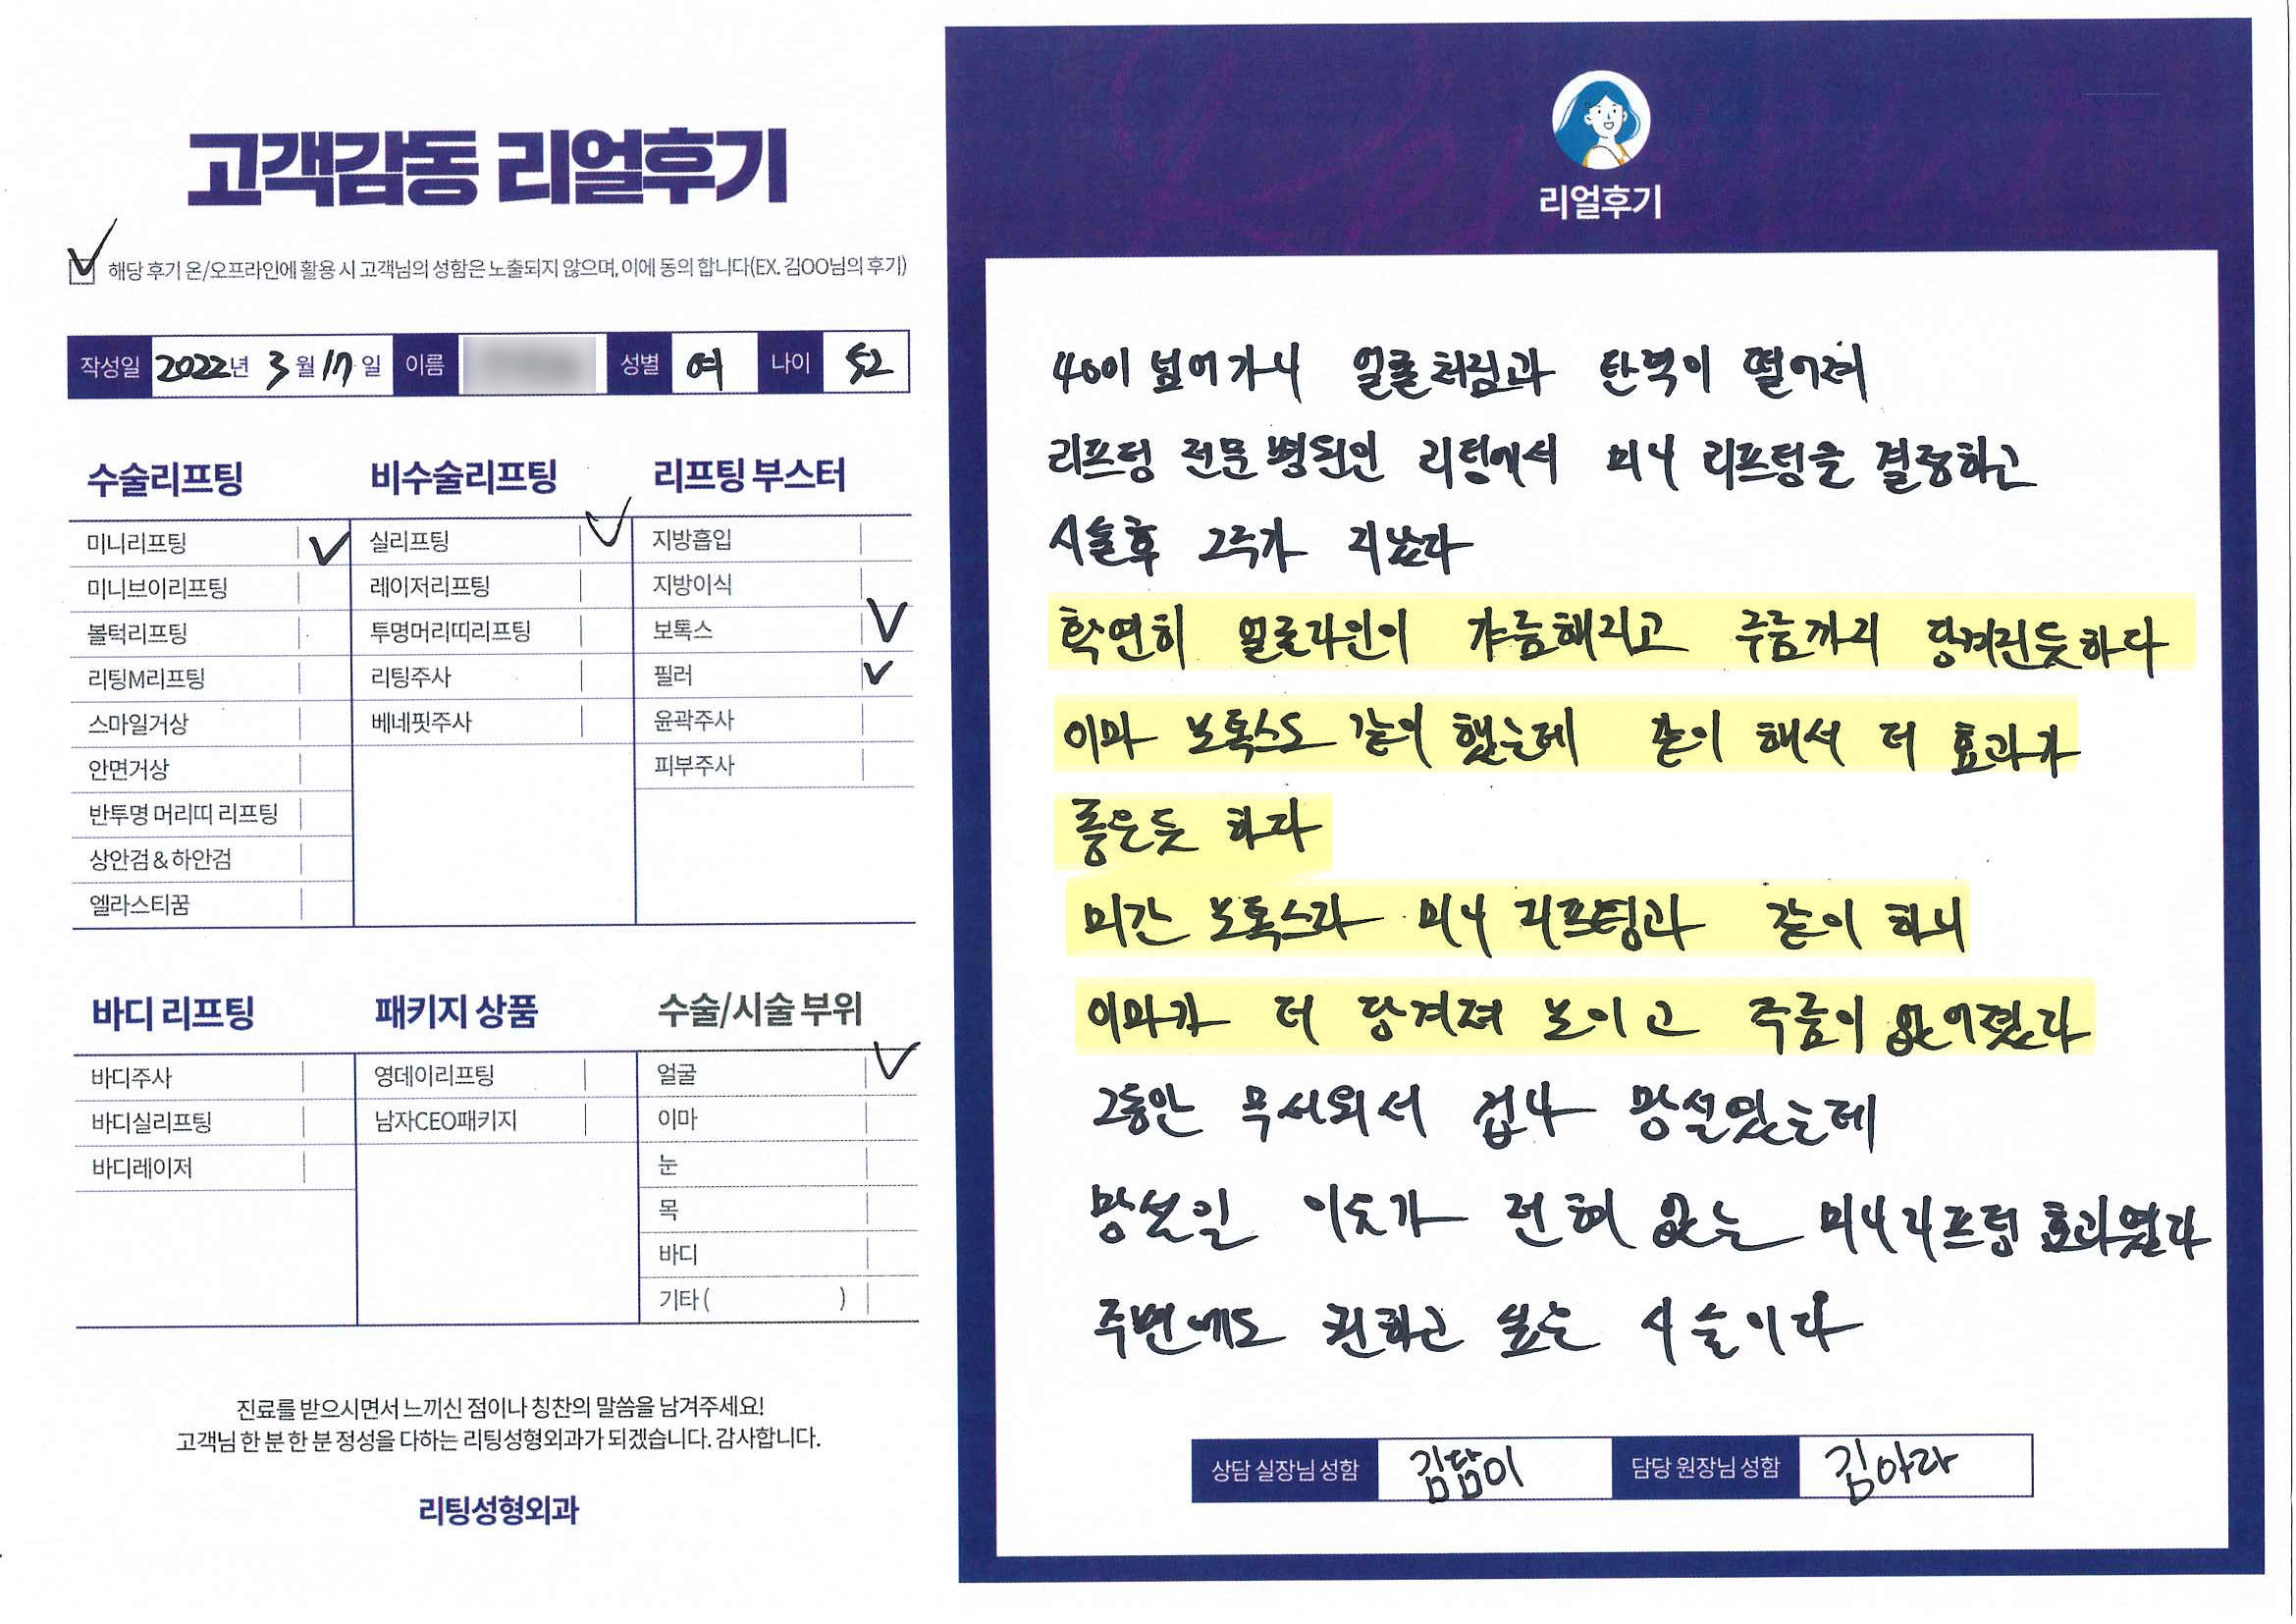 고객감동 리얼후기
해당 후기 온/오프라인에 활용 시 고객님의 성함은 노출되지 않으며, 이에 동의 합니다(EX. 김OO님의 후기)
작성일 2022년 3월 17일 이름 성별 여 나이 52
수술리프팅
미니리프팅
미니브이리프팅
볼턱리프팅
리팅M리프팅
스마일거상
안면거상
반투명 머리띠 리프팅
상안검 & 하안검
엘라스티꿈
비수술리프팅
실리프팅
레이저리프팅
투명머리띠리프팅
리팅주사
베네핏주사
리프팅 부스터
지방흡입
지방이식
보톡스
필러
윤곽주사
피부주사
바디 리프팅
바디주사
바디실리프팅
바디레이저
패키지 상품
영데이리프팅
남자CEO패키지
수술/시술 부위
얼굴
이마
눈
목
바디
기타 ( )
진료를 받으시면서 느끼신 점이나 칭찬의 말씀을 남겨주세요!
고객님 한 분 한 분 정성을 다하는 리팅성형외과가 되겠습니다. 감사합니다.
리팅성형외과
리얼후기
40이 넘어가니 얼굴처짐과 탄력이 떨어져
리프팅 전문 병원인 리팅에서 미니 리프팅을 결정하고
시술후 2주가 지났다
확연히 얼굴라인이 갸름해지고 주름까지 당겨진듯하다
이마 보톡스도 같이 했는데 같이 해서 더 효과가
좋은듯 하다
미간 보톡스라 미니 리프팅과 같이 하니
이마가 더 당겨져 보이고 주름이 없어졌다
그동안 무서워서 겁나 망설였는데
망설일 이유가 전혀 없는 미니리프팅 효과였다
주변에도 권하고 싶은 시술이다
상담 실장님 성함 김담이 담당 원장님 성함 김아라